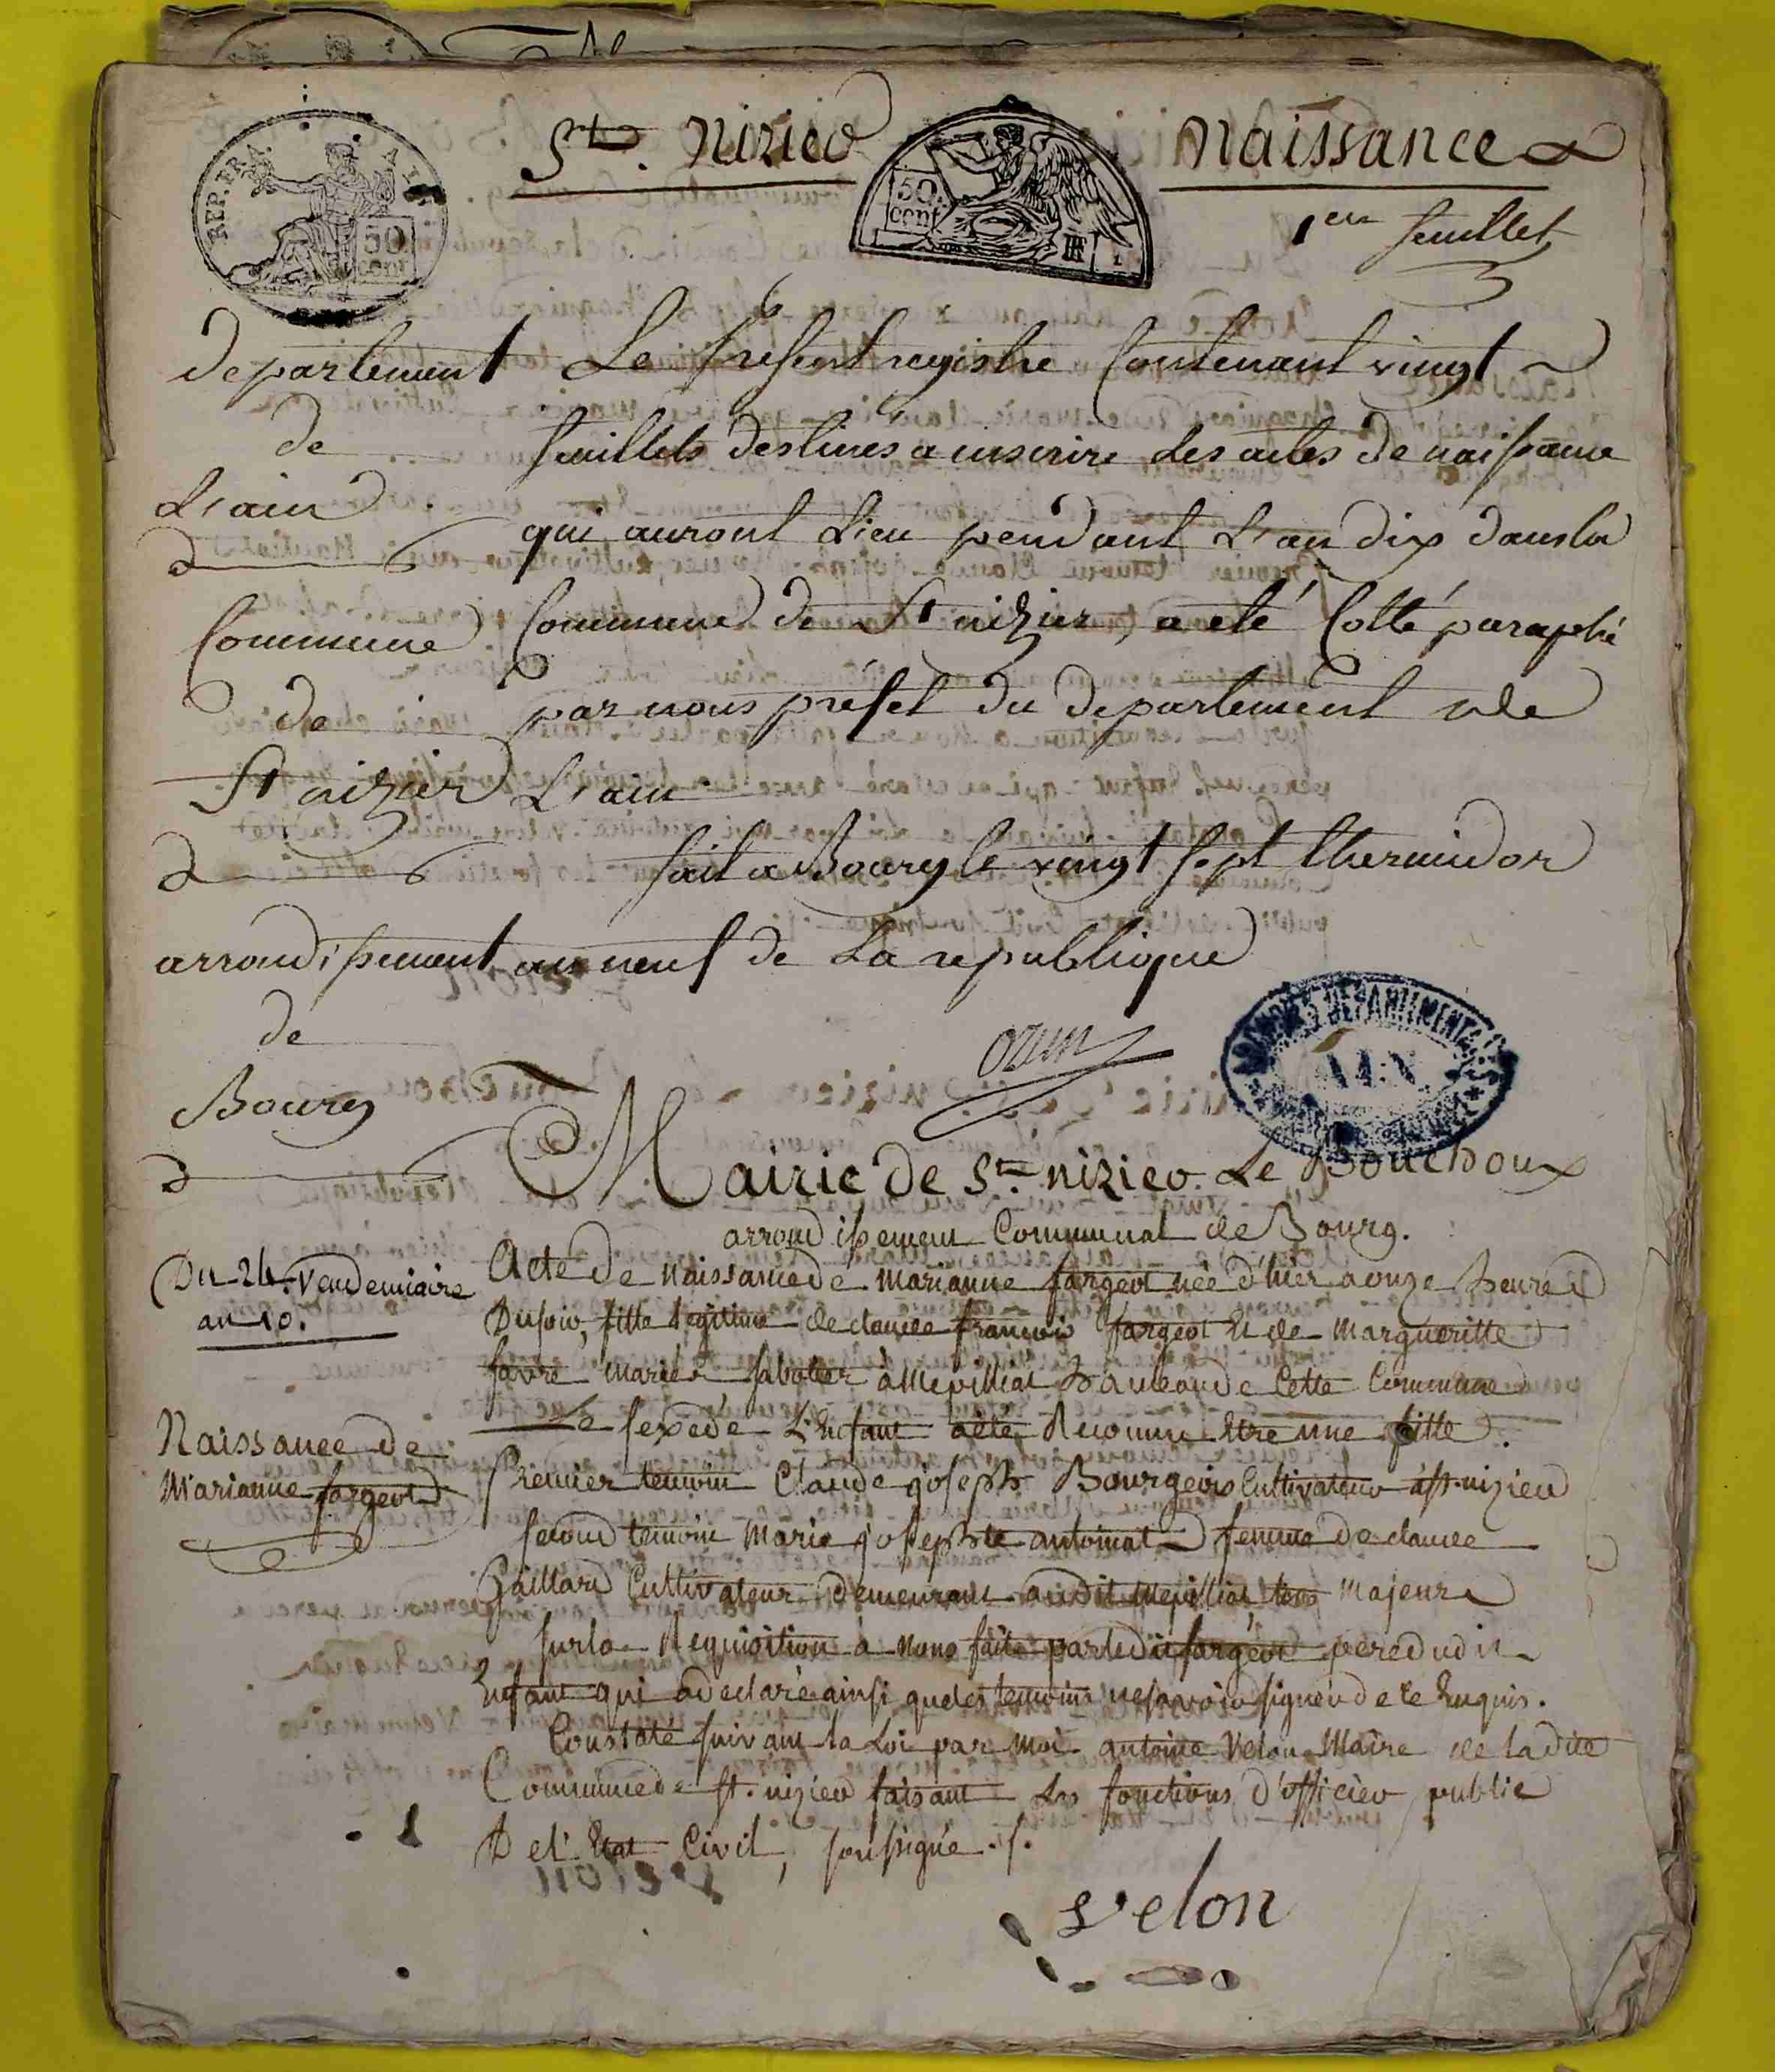 St. Nizier
Naissance
REP. FRA.
50 cent
50. cent
1er feuillet
departement
de
L'ain
Commune
de
St nizier
arrondissement
de
Bourg
Le present registre Contenant vingt
feuillets destinés a inscrire les actes de naissance
qui auront Lieu pendant L'an dix dans la
Commune de St nizier, a eté Cotté paraphé
par nous prefet du departement de
L'ain
fait a Bourg le vingt sept thermidor
an neuf de La republique
ozun
ARCHIVES DEPARTEMENTALES
AIN
Mairie de St. nizier Le Bouchoux
arrondissement Communal de Bourg.
Du 24. Vendemiaire
an 10.
Naissance de
Marianne fargeot
Acte de Naissance de Marianne fargeot née d'hier a onze heures
Du soir, fille legitime de claude françois fargeot Et de Margueritte
favre mariés sabotier à Mepilliat hameau de Cette Commune
Le sexe de L'Enfant a été Reconnu Etre une fille.
Premier temoin Claude joseph Bourgeois Cultivateur à st. nizier
second temoin Marie josephte antoinat femme de claude
Gaillard Cultivateur demeurant audit Mepilliat tous Majeurs
sur la Requisition à Nous faite par ledit fargeot pere dudit
Enfant qui a declaré ainsi que les temoins ne savoir signer de ce Enquis.
Constaté suivant la Loi par Moi antoine Velon Maire de ladite
Commune de st. nizier faisant Les fonctions d'officier public
De l'Etat Civil, soussigné. /.
Velon